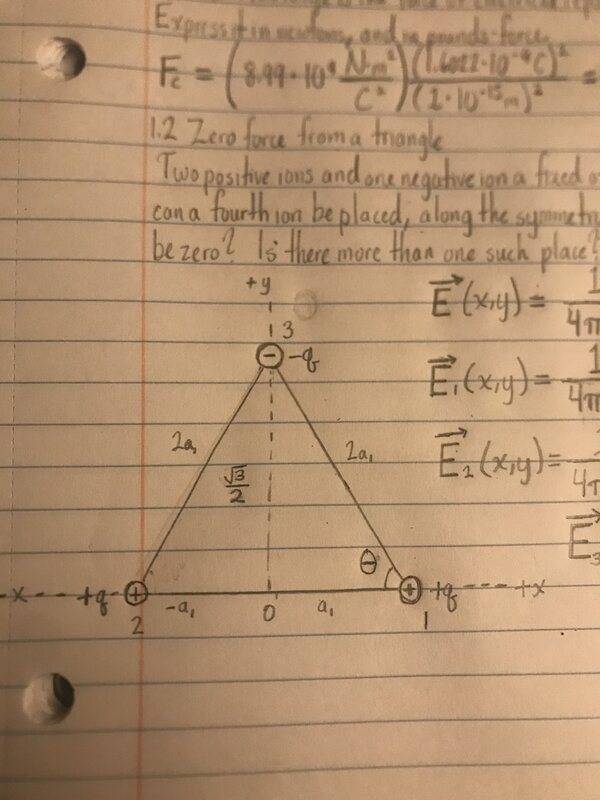 Express it in newtons, and in pounds-force.
F_c = (8.99·10⁹ N·m²/C²) (1.6022·10⁻¹⁹C)²/(2·10⁻¹⁵m)² =
1.2 Zero force from a triangle
Two positive ions and one negative ion a fixed a
can a fourth ion be placed, along the symmetr
be zero? Is there more than one such place?
+y
E⃗(x,y) = 1/4π
3
- -q
E⃗₁(x,y) = 1/4π
2a₁ 2a₁
E⃗₂(x,y) = 4π
√3/2
E⃗₃
θ
-x +q + -a₁ 0 a₁ + +q +x
2 1